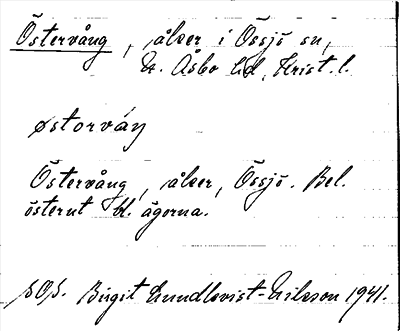 Östervång, åker i Össjö sn,
N. Åsbo hd, Krist. l.
østorváŋ
Östervång, åker, Össjö. Bel.
österut bl. ägorna.
Birgit Lundkvist-Nilsson 1941.